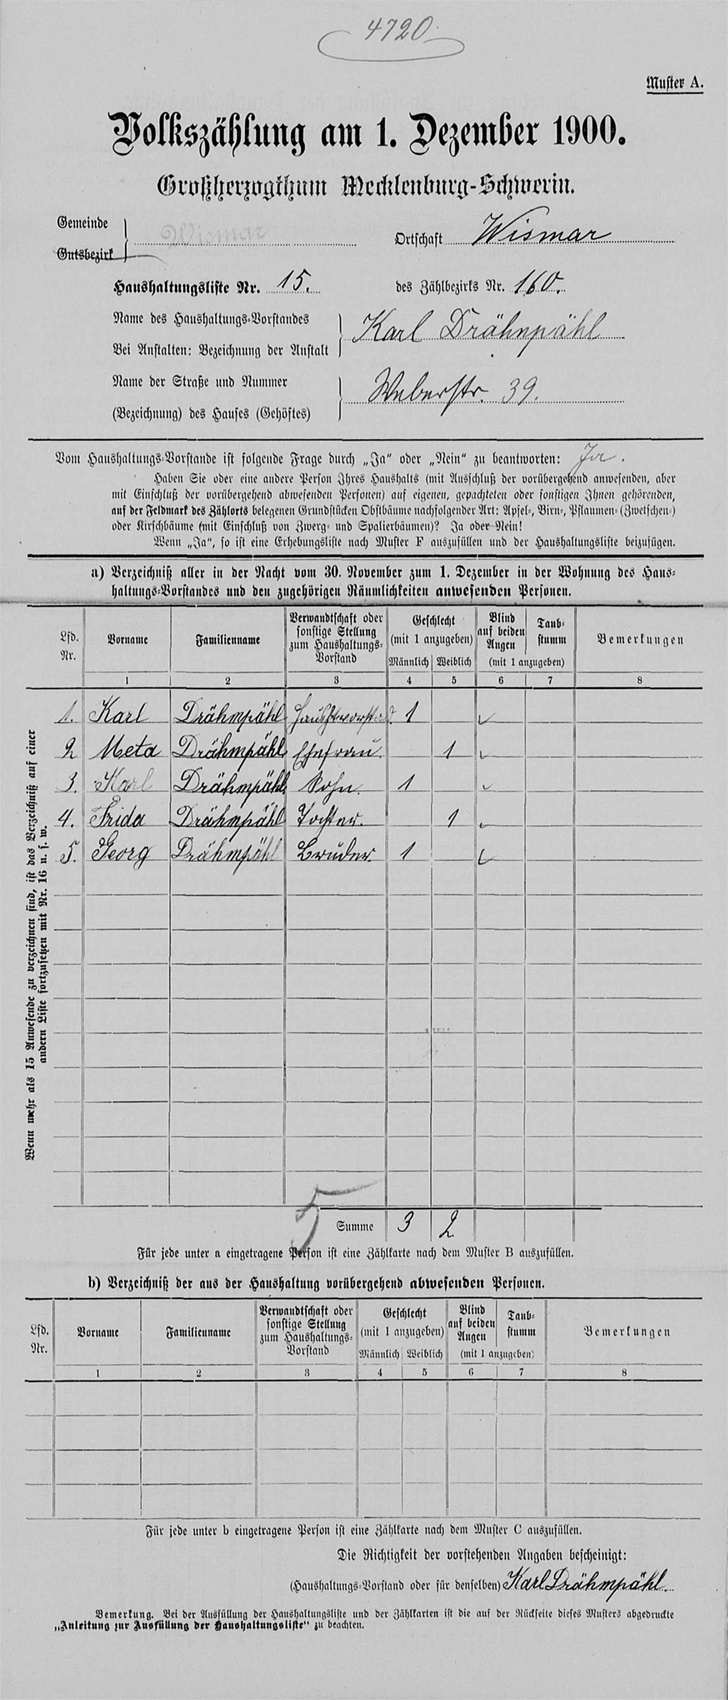 4720.
Muster A.
Volkszählung am 1. Dezember 1900.
Großherzogthum Mecklenburg-Schwerin.
Gemeinde Wismar Ortschaft Wismar
Gutsbezirk
Haushaltungsliste Nr. 15. des Zählbezirks Nr. 160.
Name des Haushaltungs-Vorstandes
Bei Anstalten: Bezeichnung der Anstalt Karl Drähmpähl
Name der Straße und Nummer
(Bezeichnung) des Hauses (Gehöftes) Weberstr. 39.
Vom Haushaltungs-Vorstande ist folgende Frage durch „Ja“ oder „Nein“ zu beantworten: Ja.
Haben Sie oder eine andere Person Ihres Haushalts (mit Ausschluß der vorübergehend anwesenden, aber
mit Einschluß der vorübergehend abwesenden Personen) auf eigenen, gepachteten oder sonstigen Ihnen gehörenden,
auf der Feldmark des Zählorts belegenen Grundstücken Obstbäume nachfolgender Art: Apfel-, Birn-, Pflaumen- (Zwetschen-)
oder Kirschbäume (mit Einschluß von Zwerg- und Spalierbäumen)? Ja oder Nein!
Wenn „Ja“, so ist eine Erhebungsliste nach Muster F auszufüllen und der Haushaltungsliste beizufügen.
a) Verzeichniß aller in der Nacht vom 30. November zum 1. Dezember in der Wohnung des Haus-
haltungs-Vorstandes und den zugehörigen Räumlichkeiten anwesenden Personen.
Lfd. Nr. Vorname Familienname Verwandtschaft oder sonstige Stellung zum Haushaltungs-Vorstand Geschlecht (mit 1 anzugeben) Männlich Weiblich Blind auf beiden Augen Taub-stumm (mit 1 anzugeben) Bemerkungen
1 2 3 4 5 6 7 8
1. Karl Drähmpähl Haushltvorstad. 1
2 Meta Drähmpähl Ehefrau. 1
3. Karl Drähmpähl Sohn. 1
4. Frida Drähmpähl Tochter. 1
5. Georg Drähmpähl Bruder. 1
Wenn mehr als 15 Anwesende zu verzeichnen sind, ist das Verzeichniß auf einer
andern Liste fortzusetzen mit Nr. 16 u. s. w.
5 Summe 3 2
Für jede unter a eingetragene Person ist eine Zählkarte nach dem Muster B auszufüllen.
b) Verzeichniß der aus der Haushaltung vorübergehend abwesenden Personen.
Lfd. Nr. Vorname Familienname Verwandtschaft oder sonstige Stellung zum Haushaltungs-Vorstand Geschlecht (mit 1 anzugeben) Männlich Weiblich Blind auf beiden Augen Taub-stumm (mit 1 anzugeben) Bemerkungen
1 2 3 4 5 6 7 8
Für jede unter b eingetragene Person ist eine Zählkarte nach dem Muster C auszufüllen.
Die Richtigkeit der vorstehenden Angaben bescheinigt:
(Haushaltungs-Vorstand oder für denselben) Karl Drähmpähl.
Bemerkung. Bei der Ausfüllung der Haushaltungsliste und der Zählkarten ist die auf der Rückseite dieses Musters abgedruckte
„Anleitung zur Ausfüllung der Haushaltungsliste“ zu beachten.